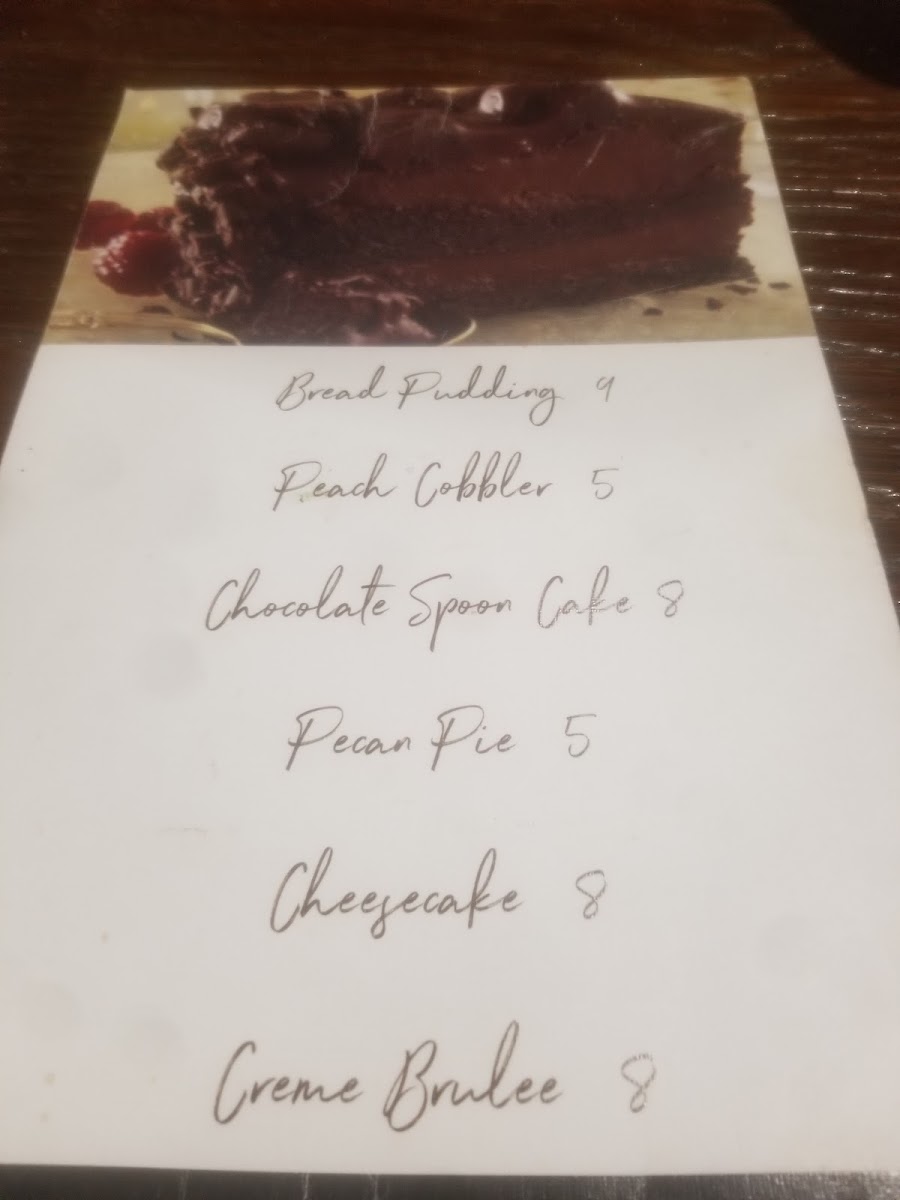 Bread Pudding 9
Peach Cobbler 5
Chocolate Spoon Cake 8
Pecan Pie 5
Cheesecake 8
Creme Brulee 8